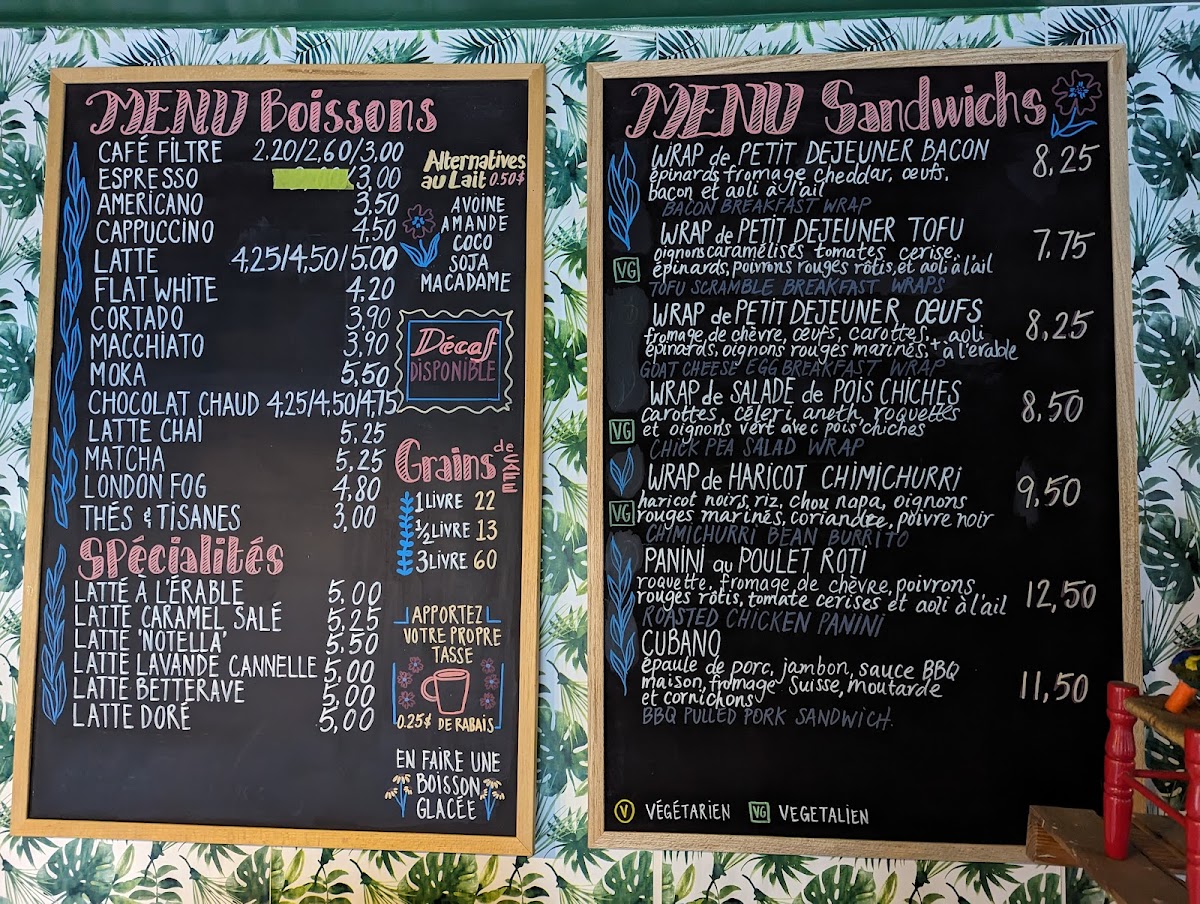 MENU Boissons
CAFÉ FILTRE 2,20/2,60/3,00
ESPRESSO /3,00
AMERICANO 3,50
CAPPUCCINO 4,50
LATTE 4,25/4,50/5,00
FLAT WHITE 4,20
CORTADO 3,90
MACCHIATO 3,90
MOKA 5,50
CHOCOLAT CHAUD 4,25/4,50/4,75
LATTE CHAI 5,25
MATCHA 5,25
LONDON FOG 4,80
THÉS & TISANES 3,00
Spécialités
LATTE À L'ÉRABLE 5,00
LATTE CARAMEL SALÉ 5,25
LATTE 'NOTELLA' 5.50
LATTE LAVANDE CANNELLE 5,00
LATTE BETTERAVE 5,00
LATTE DORÉ 5,00
Alternatives
au Lait 0.50$
AVOINE
AMANDE
COCO
SOJA
MACADAME
Décaf
DISPONIBLE
Grains de
1 LIVRE 22
1/2 LIVRE 13
3 LIVRE 60
APPORTEZ
VOTRE PROPRE
TASSE
0.25$ DE RABAIS
EN FAIRE UNE
BOISSON
GLACÉE
MENU Sandwichs
WRAP de PETIT DEJEUNER BACON 8,25
épinards fromage cheddar, œufs,
bacon et aoli à l'ail
BACON BREAKFAST WRAP
WRAP de PETIT DEJEUNER TOFU 7,75
oignons caramélisés tomates cerise,
VG épinards, poivrons rouges rôtis, et aoli à l'ail
TOFU SCRAMBLE BREAKFAST WRAPS
WRAP de PETIT DEJEUNER ŒUFS 8,25
fromage de chèvre, œufs, carottes, aoli
épinards, oignons rouges marinés, + à l'érable
GOAT CHEESE EGG BREAKFAST WRAP
WRAP de SALADE de POIS CHICHES 8,50
carottes, céleri, aneth, roquettes
VG et oignons vert avec pois chiches
CHICK PEA SALAD WRAP
WRAP de HARICOT CHIMICHURRI 9,50
haricot noirs, riz, chou napa, oignons
VG rouges marinés, coriandre, poivre noir
CHIMICHURRI BEAN BURRITO
PANINI au POULET ROTI 12,50
roquette, fromage de chèvre, poivrons
rouges rôtis, tomate cerises et aoli à l'ail
ROASTED CHICKEN PANINI
CUBANO 11,50
épaule de porc, jambon, sauce BBQ
maison, fromage suisse, moutarde
et cornichons
BBQ PULLED PORK SANDWICH.
V VÉGÉTARIEN VG VEGETALIEN